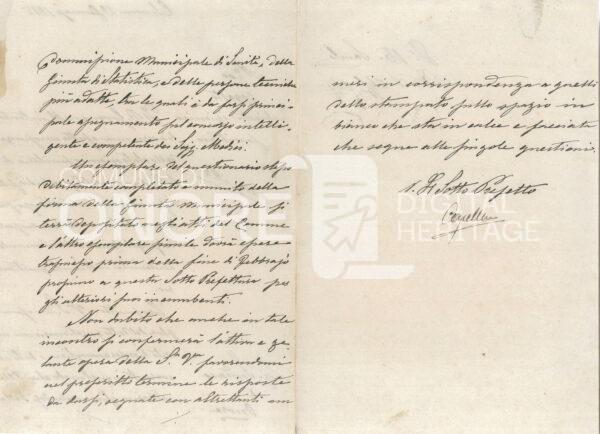 Commissione Municipale di Sanità, della
Giunta di Statistica, e delle persone tecniche
più adatte, tra le quali è da farsi princi-
pale assegnamento pel concorso intelli-
gente e competente dei Sigg. Medici.
Un esemplare del questionario stesso
debitamente completato e munito della
firma della Giunta Municipale si
terrà depositato agli atti del Comune
e l'altro esemplare simile dovrà essere
trasmesso prima della fine di Febbrajo
prossimo a questa Sotto Prefettura per
gli ulteriori suoi incombenti.
Non dubito che anche in tale
incontro si confermerà l'attiva e ze-
lante opera della S.a V.a favorendomi
nel prefisso termine le risposte
da darsi, segnate con altrettanti nu-
meri in corrispondenza a quelli
dello stampato sullo spazio in
bianco che sta in calce e facciata
che segue alle singole questioni.
Il Sotto Prefetto
COMUNE DI
DIGITAL
HERITAGE